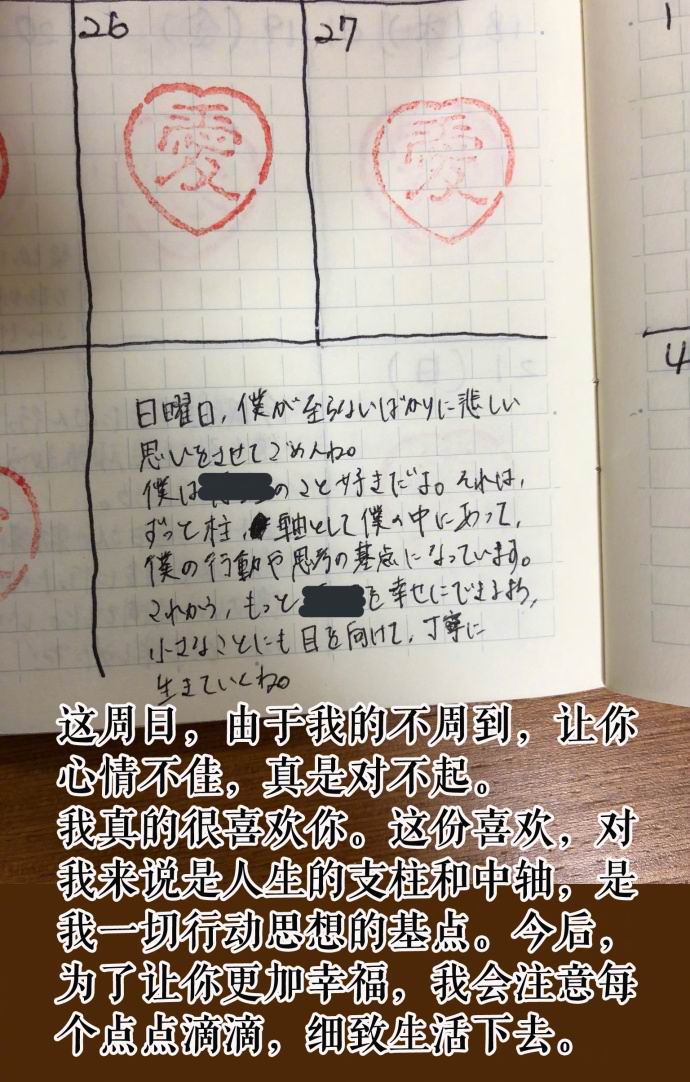 26
27
1
愛
愛
4
日曜日，僕が至らないばかりに悲しい
思いをさせてごめんね。
僕は のこと好きだよ。それは，
ずっと柱，軸として僕の中にあって，
僕の行動や思考の基点になっています。
これから，もっと を幸せにできるよう，
小さなことにも目を向けて，丁寧に
生きていくね。
这周日，由于我的不周到，让你
心情不佳，真是对不起。
我真的很喜欢你。这份喜欢，对
我来说是人生的支柱和中轴，是
我一切行动思想的基点。今后，
为了让你更加幸福，我会注意每
个点点滴滴，细致生活下去。